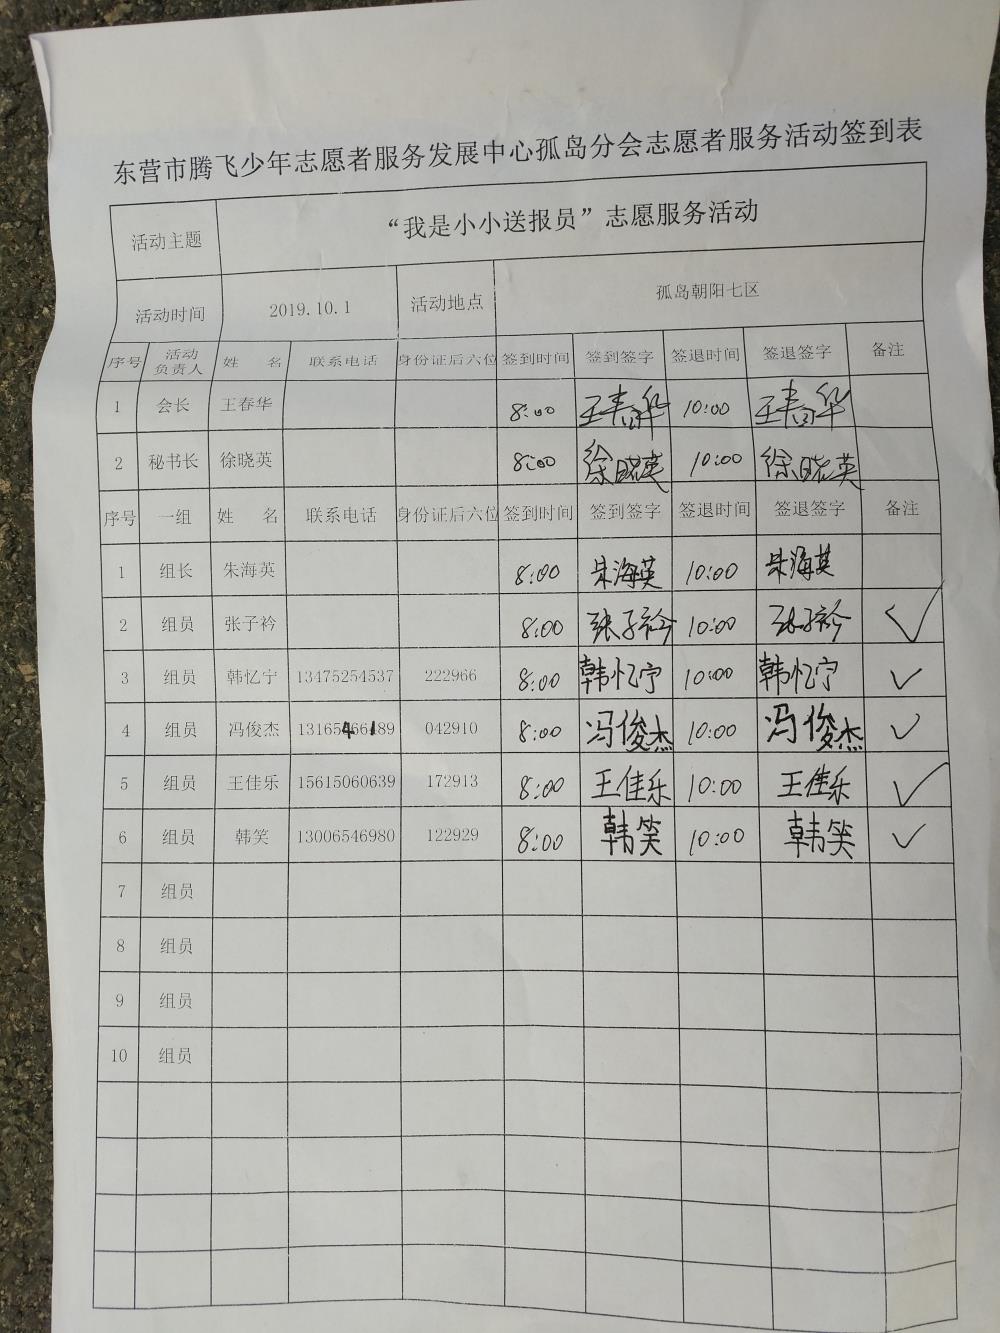 东营市腾飞少年志愿者服务发展中心孤岛分会志愿者服务活动签到表
活动主题 “我是小小送报员”志愿服务活动
活动时间 2019.10.1 活动地点 孤岛朝阳七区
序号 活动负责人 姓 名 联系电话 身份证后六位 签到时间 签到签字 签退时间 签退签字 备注
1 会长 王春华 8:00 王春华 10:00 王春华
2 秘书长 徐晓英 8:00 徐晓英 10:00 徐晓英
序号 一组 姓 名 联系电话 身份证后六位 签到时间 签到签字 签退时间 签退签字 备注
1 组长 朱海英 8:00 朱海英 10:00 朱海英
2 组员 张子衿 8:00 张子衿 10:00 张子衿 ✓
3 组员 韩忆宁 13475254537 222966 8:00 韩忆宁 10:00 韩忆宁 ✓
4 组员 冯俊杰 042910 8:00 冯俊杰 10:00 冯俊杰 ✓
5 组员 王佳乐 15615060639 172913 8:00 王佳乐 10:00 王佳乐 ✓
6 组员 韩笑 13006546980 122929 8:00 韩笑 10:00 韩笑 ✓
7 组员
8 组员
9 组员
10 组员